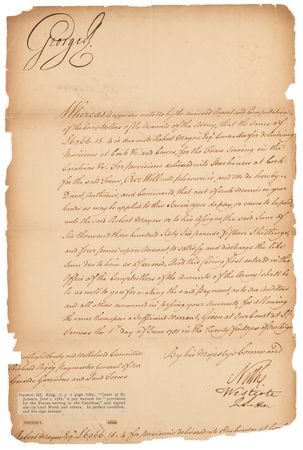 George R.
Whereas it appears unto Us by the annexed Report and Computation
of the Comptrollers of the Accounts of the Army, that the Sum of
£6366. 15. 4 is due unto Robert Mayne Esqr. Contractor for delivering
Provisions at Cork &c. and Cowes, for the Forces Serving in the
Carolinas &c. For Provisions delivered into Storehouses at Cork
for the said Forces, Our Will and Pleasure is, and We do hereby
Direct, Authorize, and Command that out of such Monies in your
hands as may be applied to this Service, you do pay, or cause to be paid
unto the said Robert Mayne or to his Assigns the said Sum of
Six thousand three hundred Sixty Six pounds Fifteen Shillings
and Four pence upon Account to satisfy and discharge the like
Sum due to him as aforesaid, And this being first entered in the
Office of the Comptrollers of the Accounts of the Army, shall be
as well to you for making the said payment as to our Auditors
and all other concerned in passing your Accounts for allowing
the same thereupon a Sufficient Warrant. Given at Our Court at St.
James's the 1st. day of June 1781 in the Twenty first year of Our Reign
By his Majestys Command
North
Westcote
Richard Rigby Paymaster General of Our
Guards Garrisons and Land Forces
GEORGE III, King. 1 page folio, "Court at St.
James's, June 1, 1781," a pay warrant for "provisions
for the Forces serving in the Carolinas," and signed
also by Lord North and others. In perfect condition,
and fine sign manual.
Robert Mayne Esqr. £6366. 15. 4 for provisions delivered into Storehouses at Cork